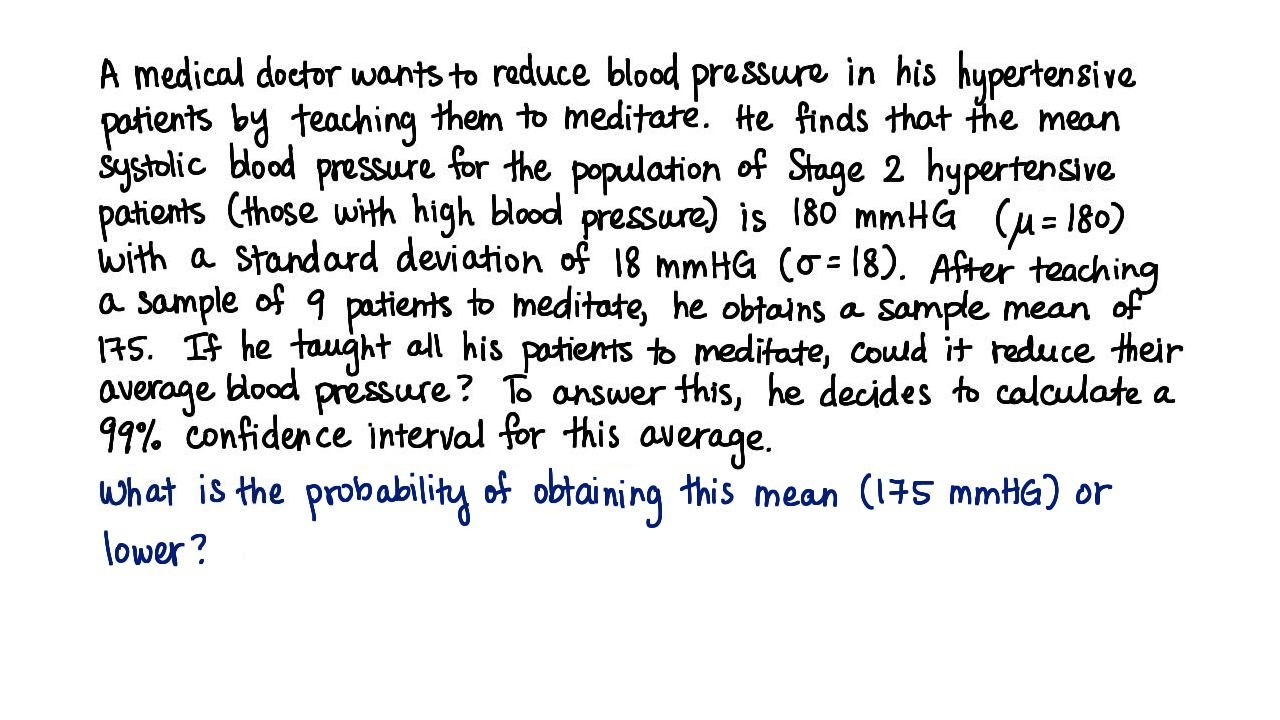 A medical doctor wants to reduce blood pressure in his hypertensive
patients by teaching them to meditate. He finds that the mean
systolic blood pressure for the population of Stage 2 hypertensive
patients (those with high blood pressure) is 180 mmHG (μ = 180)
with a standard deviation of 18 mmHG (σ = 18). After teaching
a sample of 9 patients to meditate, he obtains a sample mean of
175. If he taught all his patients to meditate, could it reduce their
average blood pressure? To answer this, he decides to calculate a
99% confidence interval for this average.
What is the probability of obtaining this mean (175 mmHG) or
lower?